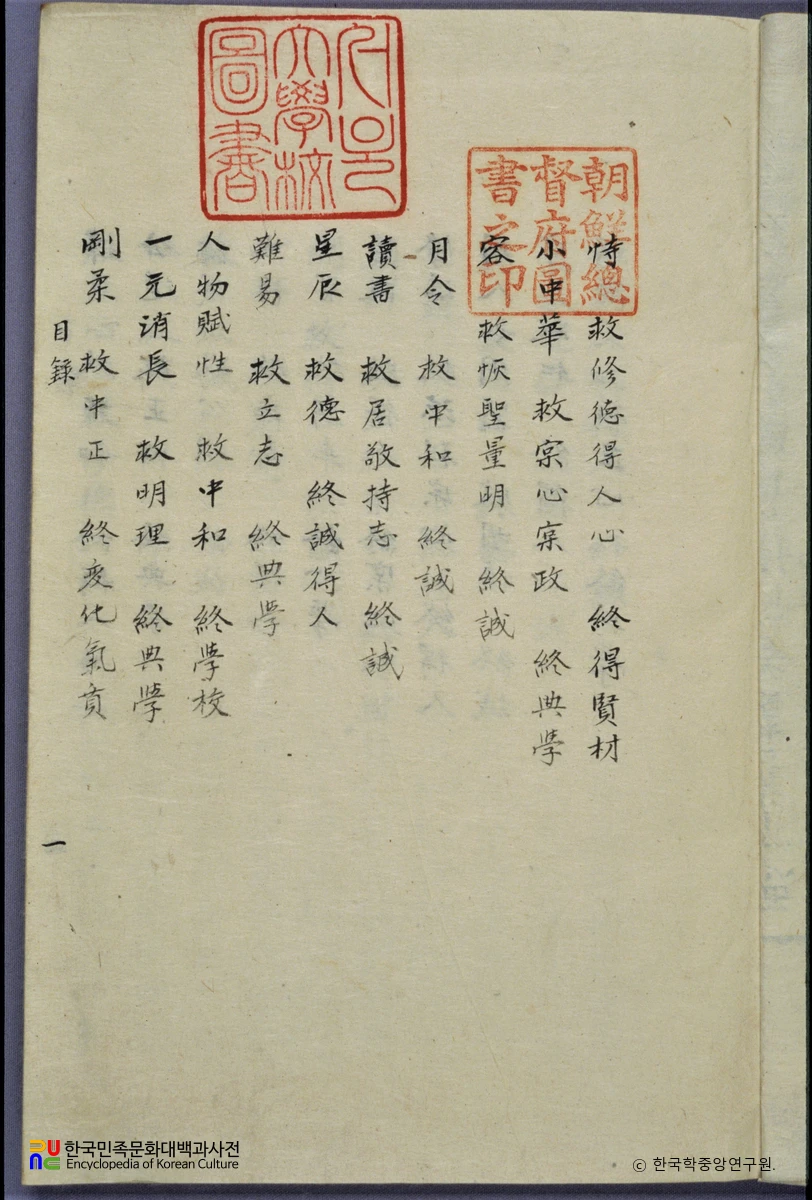 朝鮮總
督府圖
書之印
서울
大學校
圖書
恃 救修德得人心 終得賢材
小中華 救宲心宲政 終典學
容 救恢聖量明 終誠
月令 救中和 終誠
讀書 救居敬持志 終誠
星辰 救德 終誠得人
難易 救立志 終典學
人物賦性 救中和 終學校
一元消長 救明理 終典學
剛柔 救中正 終变化氣貭
目錄
一
한국민족문화대백과사전
Encyclopedia of Korean Culture
ⓒ 한국학중앙연구원.